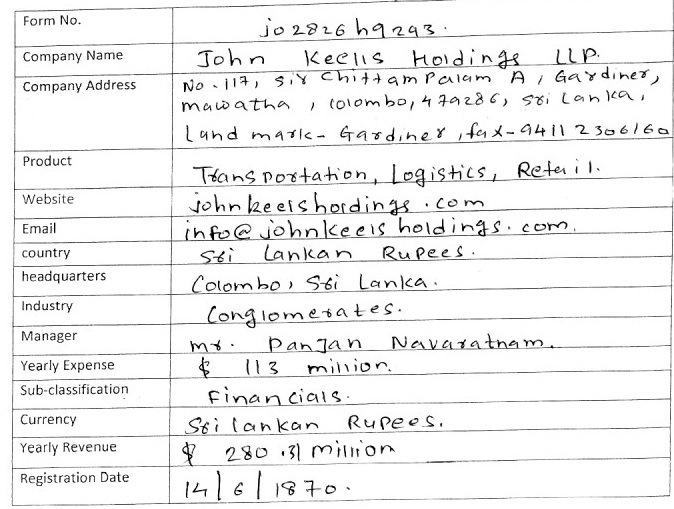 Form No. jo2826h9293.
Company Name John Keells Holdings LLP.
Company Address No.117, sir Chittampalam A, Gardiner,
mawatha, colombo, 479286, sri Lanka,
Land mark- Gardiner, fax-94112306160
Product Transportation, Logistics, Retail.
Website johnkeelshordings.com
Email info@johnkeelsholdings.com.
country Sri Lankan Rupees.
headquarters Colombo, Sri Lanka.
Industry Conglomerates.
Manager mr. Danjan Navaratnam.
Yearly Expense $ 113 million.
Sub-classification Financials.
Currency Sri lankan Rupees.
Yearly Revenue $ 280.31 million
Registration Date 14/6/1870.